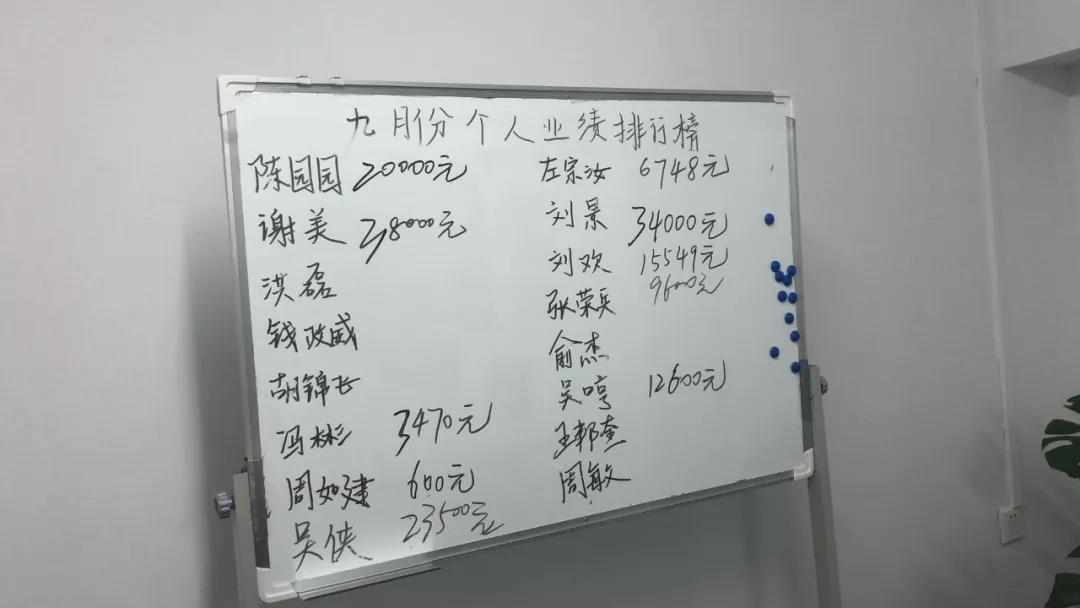 九月份个人业绩排行榜
陈园园 20000元
谢美 38000元
洪磊
钱政威
胡锦飞
冯彬 3470元
周如建 600元
吴侠 23500元
左宗汝 6748元
刘景 34000元
刘欢 15549元
张荣兵 9600元
俞杰
吴哼 12600元
王邦奎
周敏